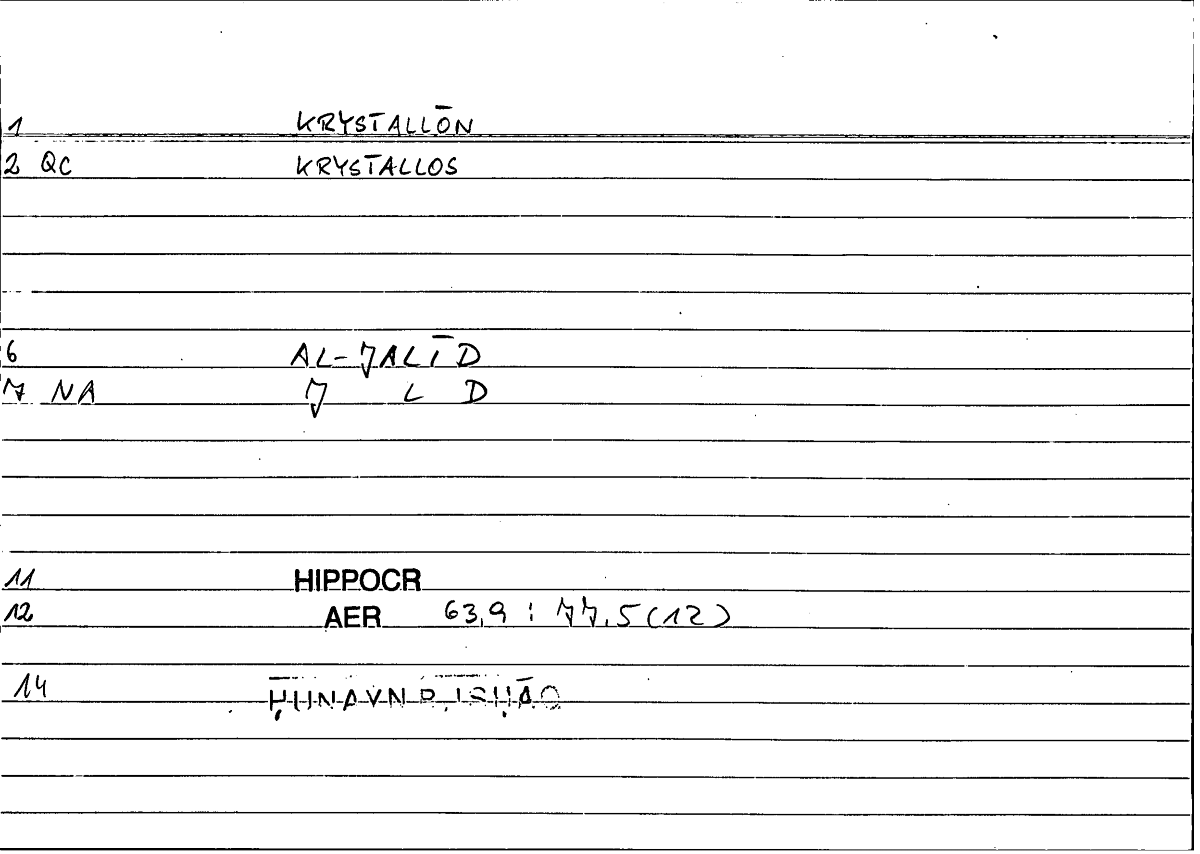 1 KRYSTALLŌN
2 QC KRYSTALLOS
6 AL-JALĪD
7 NA J L D
11 HIPPOCR
12 AER 63,9 : 77,5 (12)
14 ḤUNAYN B. ISḤĀQ